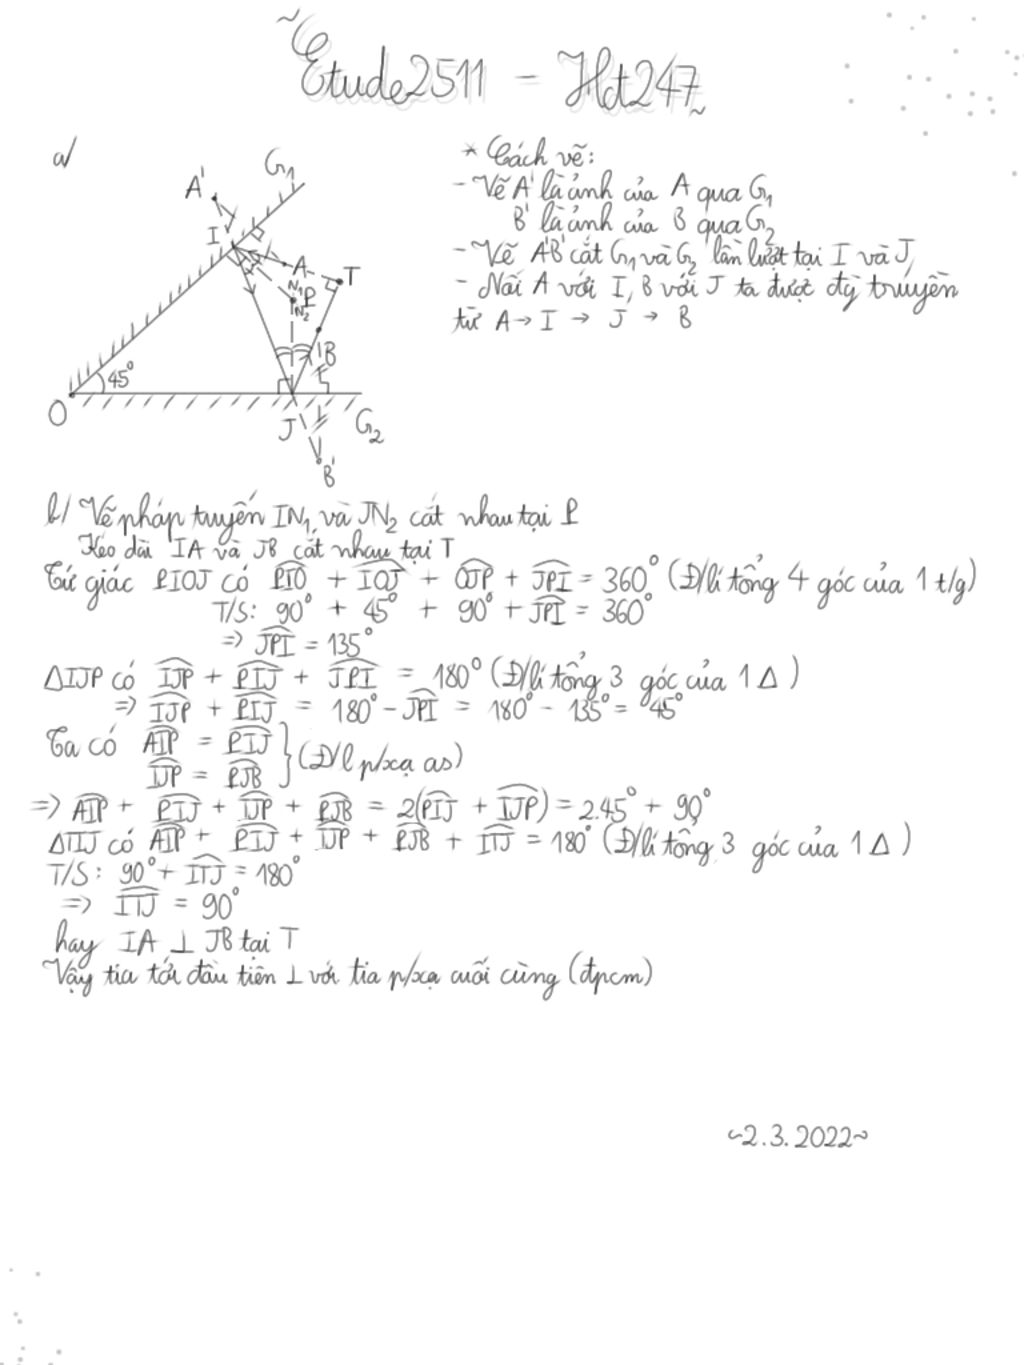 ~Etude2511 - Hd247~
a/
* Cách vẽ:
- Vẽ A' là ảnh của A qua G₁
B' là ảnh của B qua G₂
- Vẽ A'B' cắt G₁ và G₂ lần lượt tại I và J
- Nối A với I, B với J ta được đg truyền
từ A → I → J → B
A'
G₁
I
A
T
N₁
P
N₂
B
45°
O
J
G₂
B'
b/ Vẽ pháp tuyến IN₁ và JN₂ cắt nhau tại P
Kéo dài IA và JB cắt nhau tại T
Tứ giác PIOJ có PIO + IOJ + OJP + JPI = 360° (Đ/lí tổng 4 góc của 1 t/g)
T/S: 90° + 45° + 90° + JPI = 360°
=> JPI = 135°
ΔIJP có IJP + PIJ + JPI = 180° (Đ/lí tổng 3 góc của 1 Δ)
=> IJP + PIJ = 180° - JPI = 180° - 135° = 45°
Ta có AIP = PIJ
IJP = PJB } (Đ/l p/xạ as)
=> AIP + PIJ + IJP + PJB = 2(PIJ + IJP) = 2.45° + 90°
ΔTIJ có AIP + PIJ + IJP + PJB + ITJ = 180° (Đ/lí tổng 3 góc của 1 Δ)
T/S: 90° + ITJ = 180°
=> ITJ = 90°
hay IA ⊥ JB tại T
Vậy tia tới đầu tiên ⊥ với tia p/xạ cuối cùng (đpcm)
~2.3.2022~